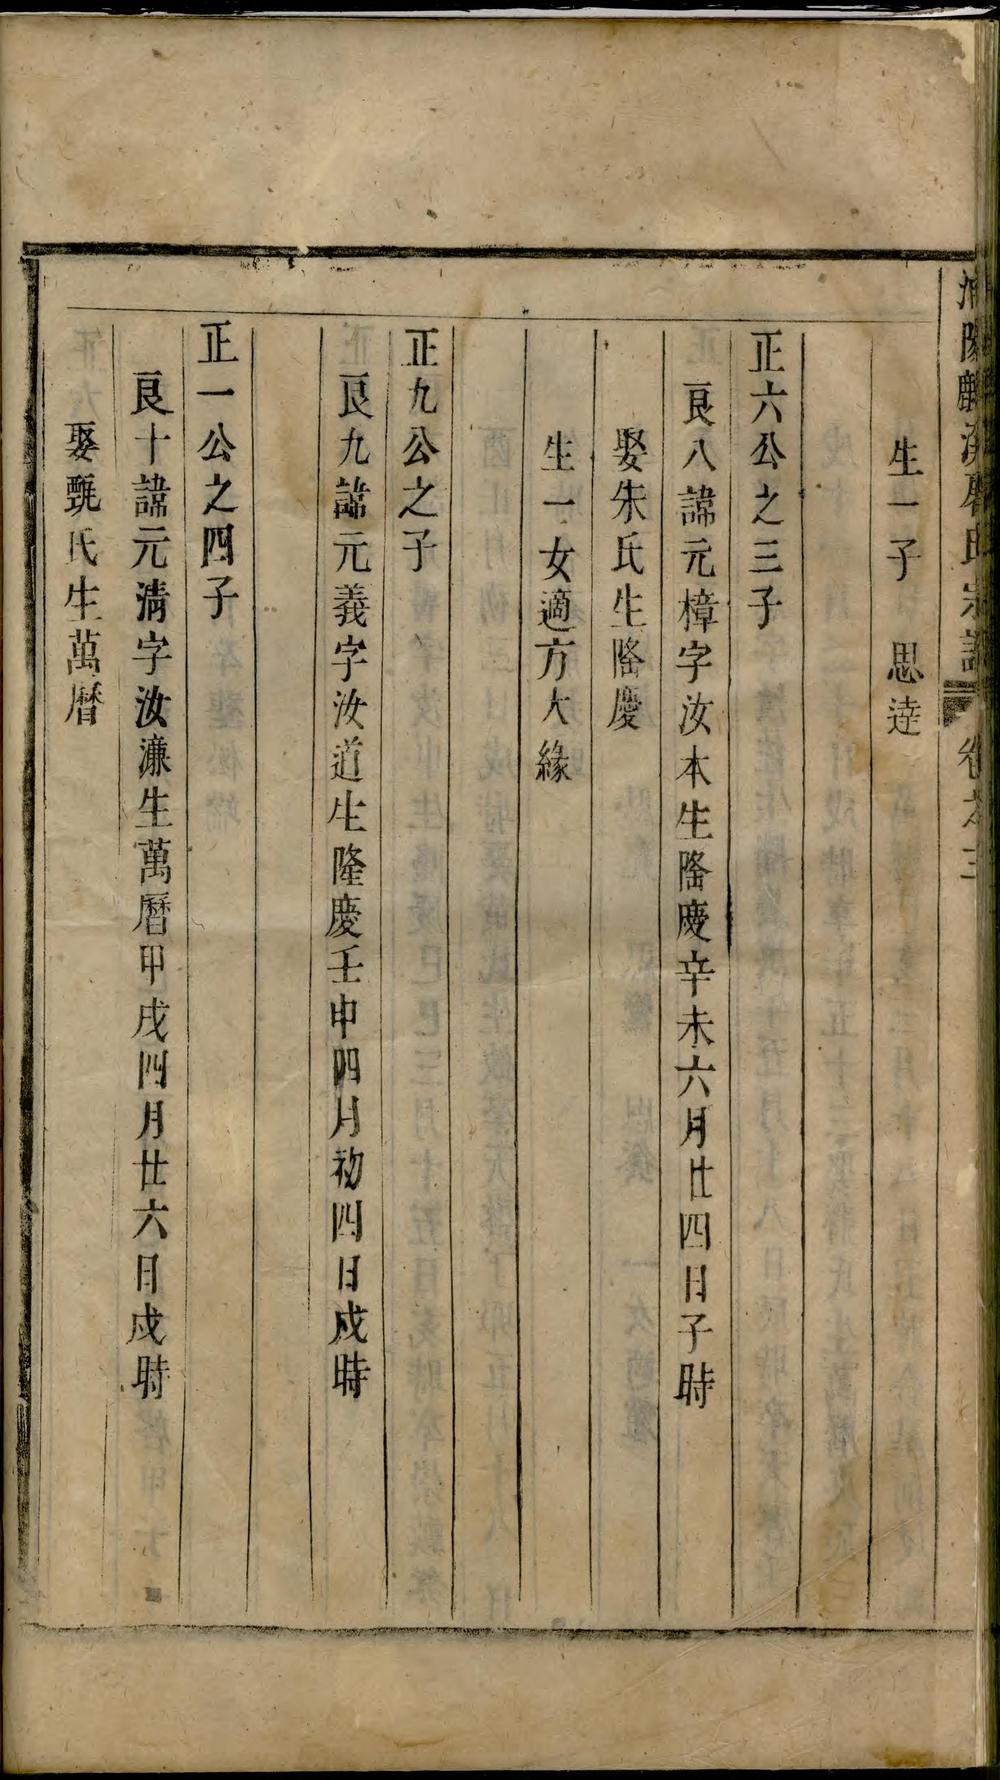 麟溪 氏宗譜 卷之三
生一子 思逹
正六公之三子
良八諱元樟字汝本生隆慶辛未六月廿四日子時
娶朱氏生隆慶
生一女適方大緣
正九公之子
良九諱元義字汝道生隆慶壬申四月初四日戌時
正一公之四子
良十諱元清字汝濂生萬曆甲戌四月廿六日戌時
娶甄氏生萬曆